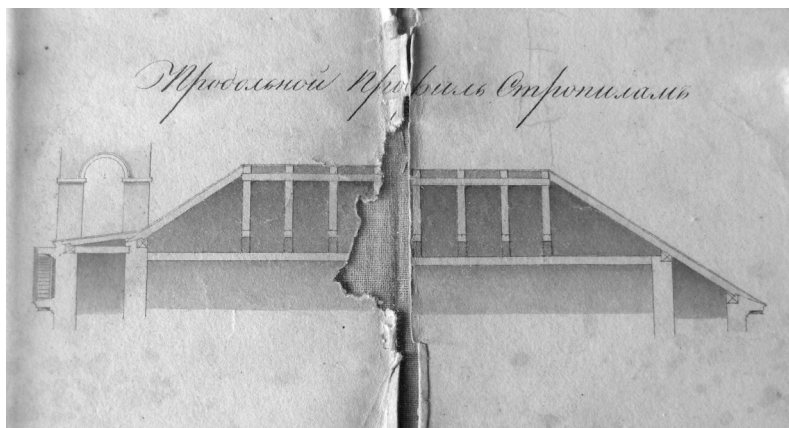 Продольной профиль Стропиламъ